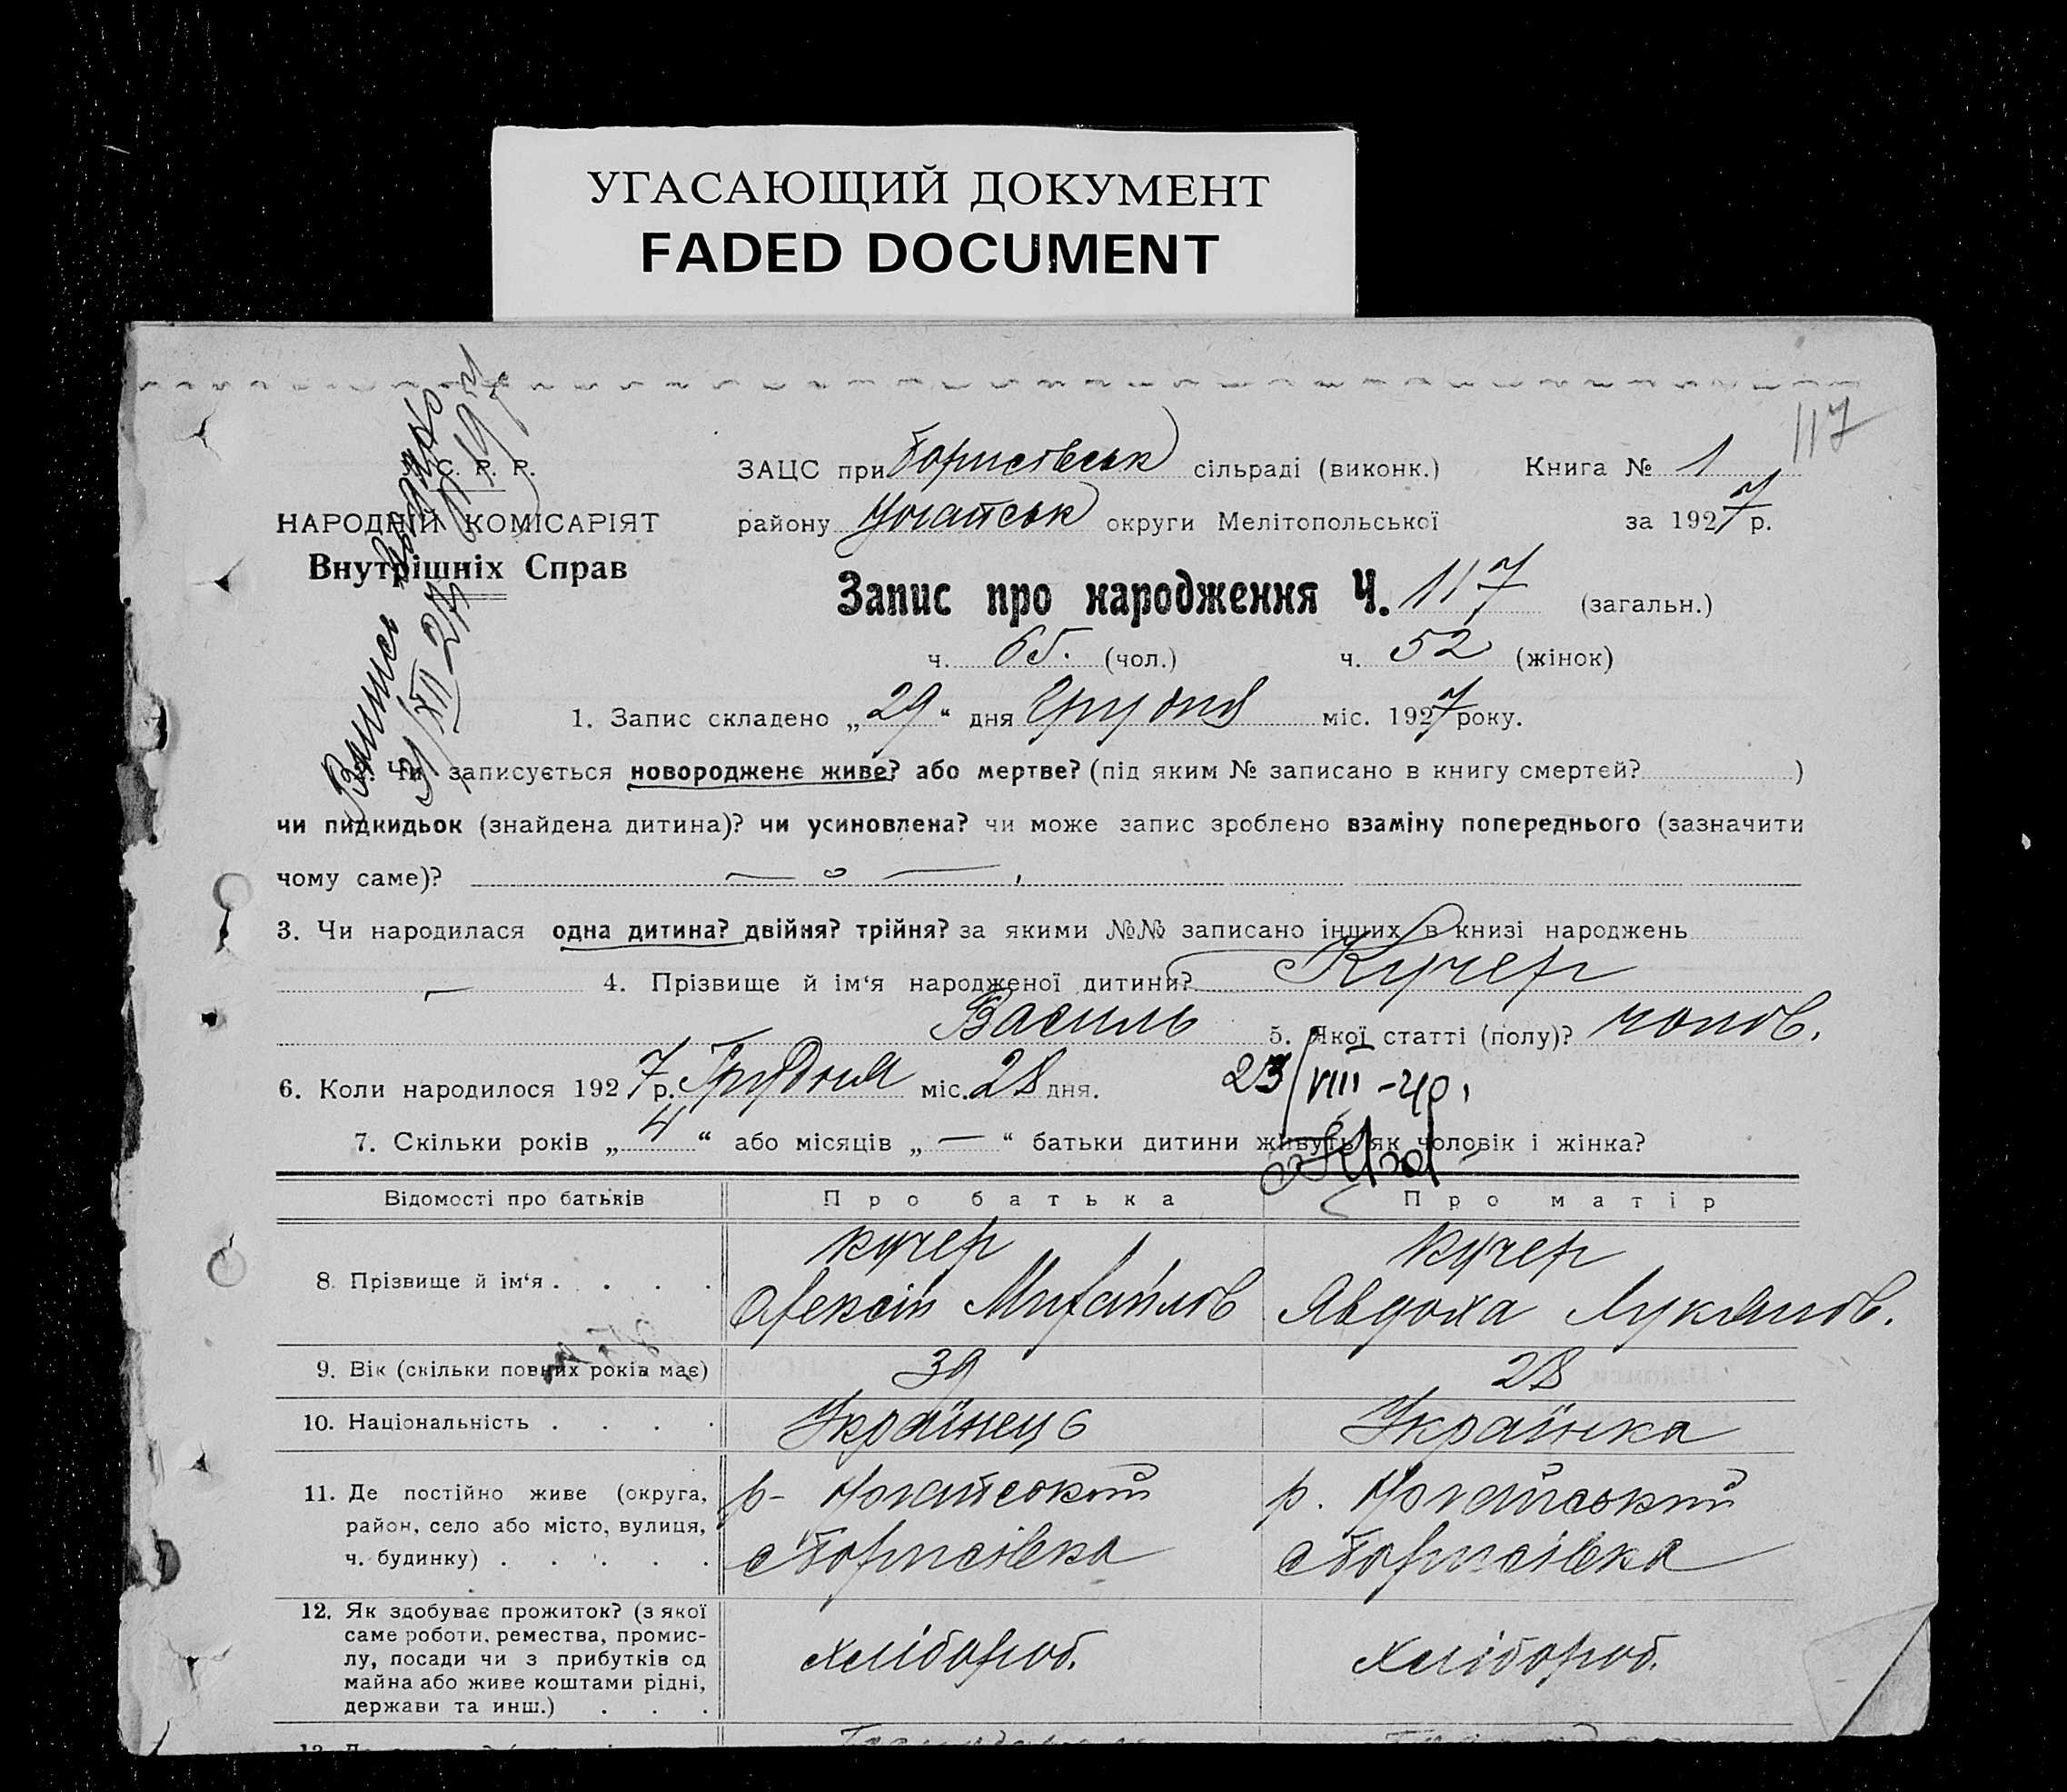 УГАСАЮЩИЙ ДОКУМЕНТ
FADED DOCUMENT
117
С. Р. Р.
НАРОДНІЙ КОМІСАРІЯТ
Внутрішніх Справ
Выпись выдана
31/XII 27
ЗАЦС при Борисівськ сільраді (виконк.) Книга № 1
району Ногайськ округи Мелітопольської за 1927 р.
Запис про народження Ч. 117 (загальн.)
ч. 65. (чол.) ч. 52 (жінок)
1. Запис складено „29“ дня Грудня міс. 1927 року.
Чи записується новороджене живе? або мертве? (під яким № записано в книгу смертей? )
чи пидкидьок (знайдена дитина)? чи усиновлена? чи може запис зроблено взаміну попереднього (зазначити
чому саме)? — о —
3. Чи народилася одна дитина? двійня? трійня? за якими №№ записано інших в книзі народжень
— 4. Прізвище й ім‘я народженої дитини? Кучер
Василь 5. Якої статті (полу)? чолов.
6. Коли народилося 1927 р. Грудня міс. 28 дня.
23/VIII-40.
7. Скільки років „4“ або місяців „—“ батьки дитини живуть як чоловік і жінка?
Відомості про батьків Про батька Про матір
8. Прізвище й ім‘я . . . . Кучер Кучер
Олексій Михайлов Явдоха Лукянов.
9. Вік (скільки повних років має) 39 28
10. Національність . . . . Українець Українка
11. Де постійно живе (округа, р- Ногайський р. Ногайський
район, село або місто, вулиця,
ч. будинку) . . . . . с Борисівка с Борисівка
12. Як здобуває прожиток? (з якої
саме роботи, ремества, промис-
лу, посади чи з прибутків од хлібороб. хлібороб.
майна або живе коштами рідні,
держави та инш.) . . .